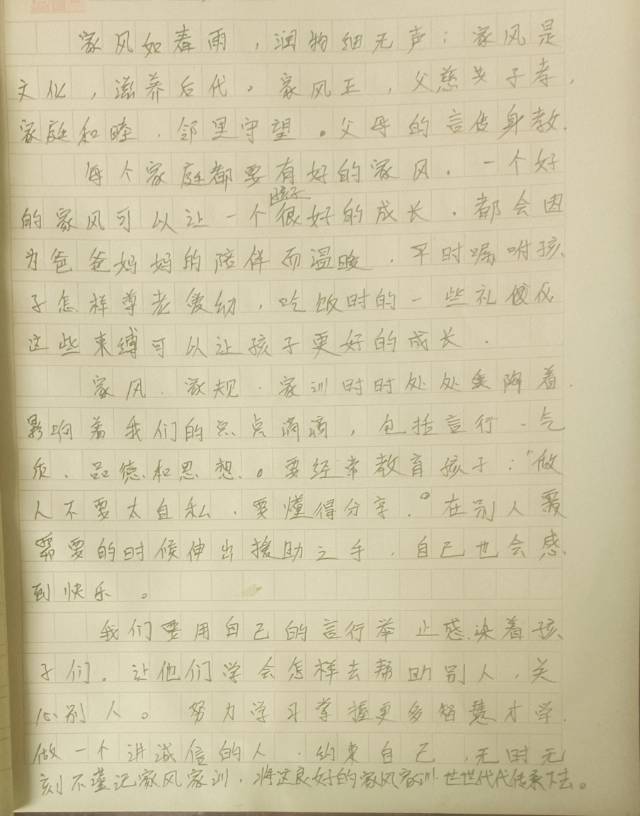 家风如春雨，润物细无声；家风是
文化，滋养后代。家风正，父慈子孝，
家庭和睦，邻里守望。父母的言传身教，
每个家庭都要有好的家风，一个好
的家风可以让一个孩子很好的成长，都会因
为爸爸妈妈的陪伴而温暖，平时嘱咐孩
子怎样尊老爱幼，吃饭时的一些礼仪
这些束缚可以让孩子更好的成长．
家风、家规、家训时时处处熏陶着，
影响着我们的点点滴滴，包括言行、气
质、品德和思想。要经常教育孩子："做
人不要太自私，要懂得分享。"在别人
需要的时候伸出援助之手，自己也会感
到快乐。
我们要用自己的言行举止感染着孩
子们，让他们学会怎样去帮助别人，关
心别人。努力学习掌握更多智慧才学，
做一个讲诚信的人，约束自己，无时无
刻不谨记家风家训，将这良好的家风家训世世代代传承下去。